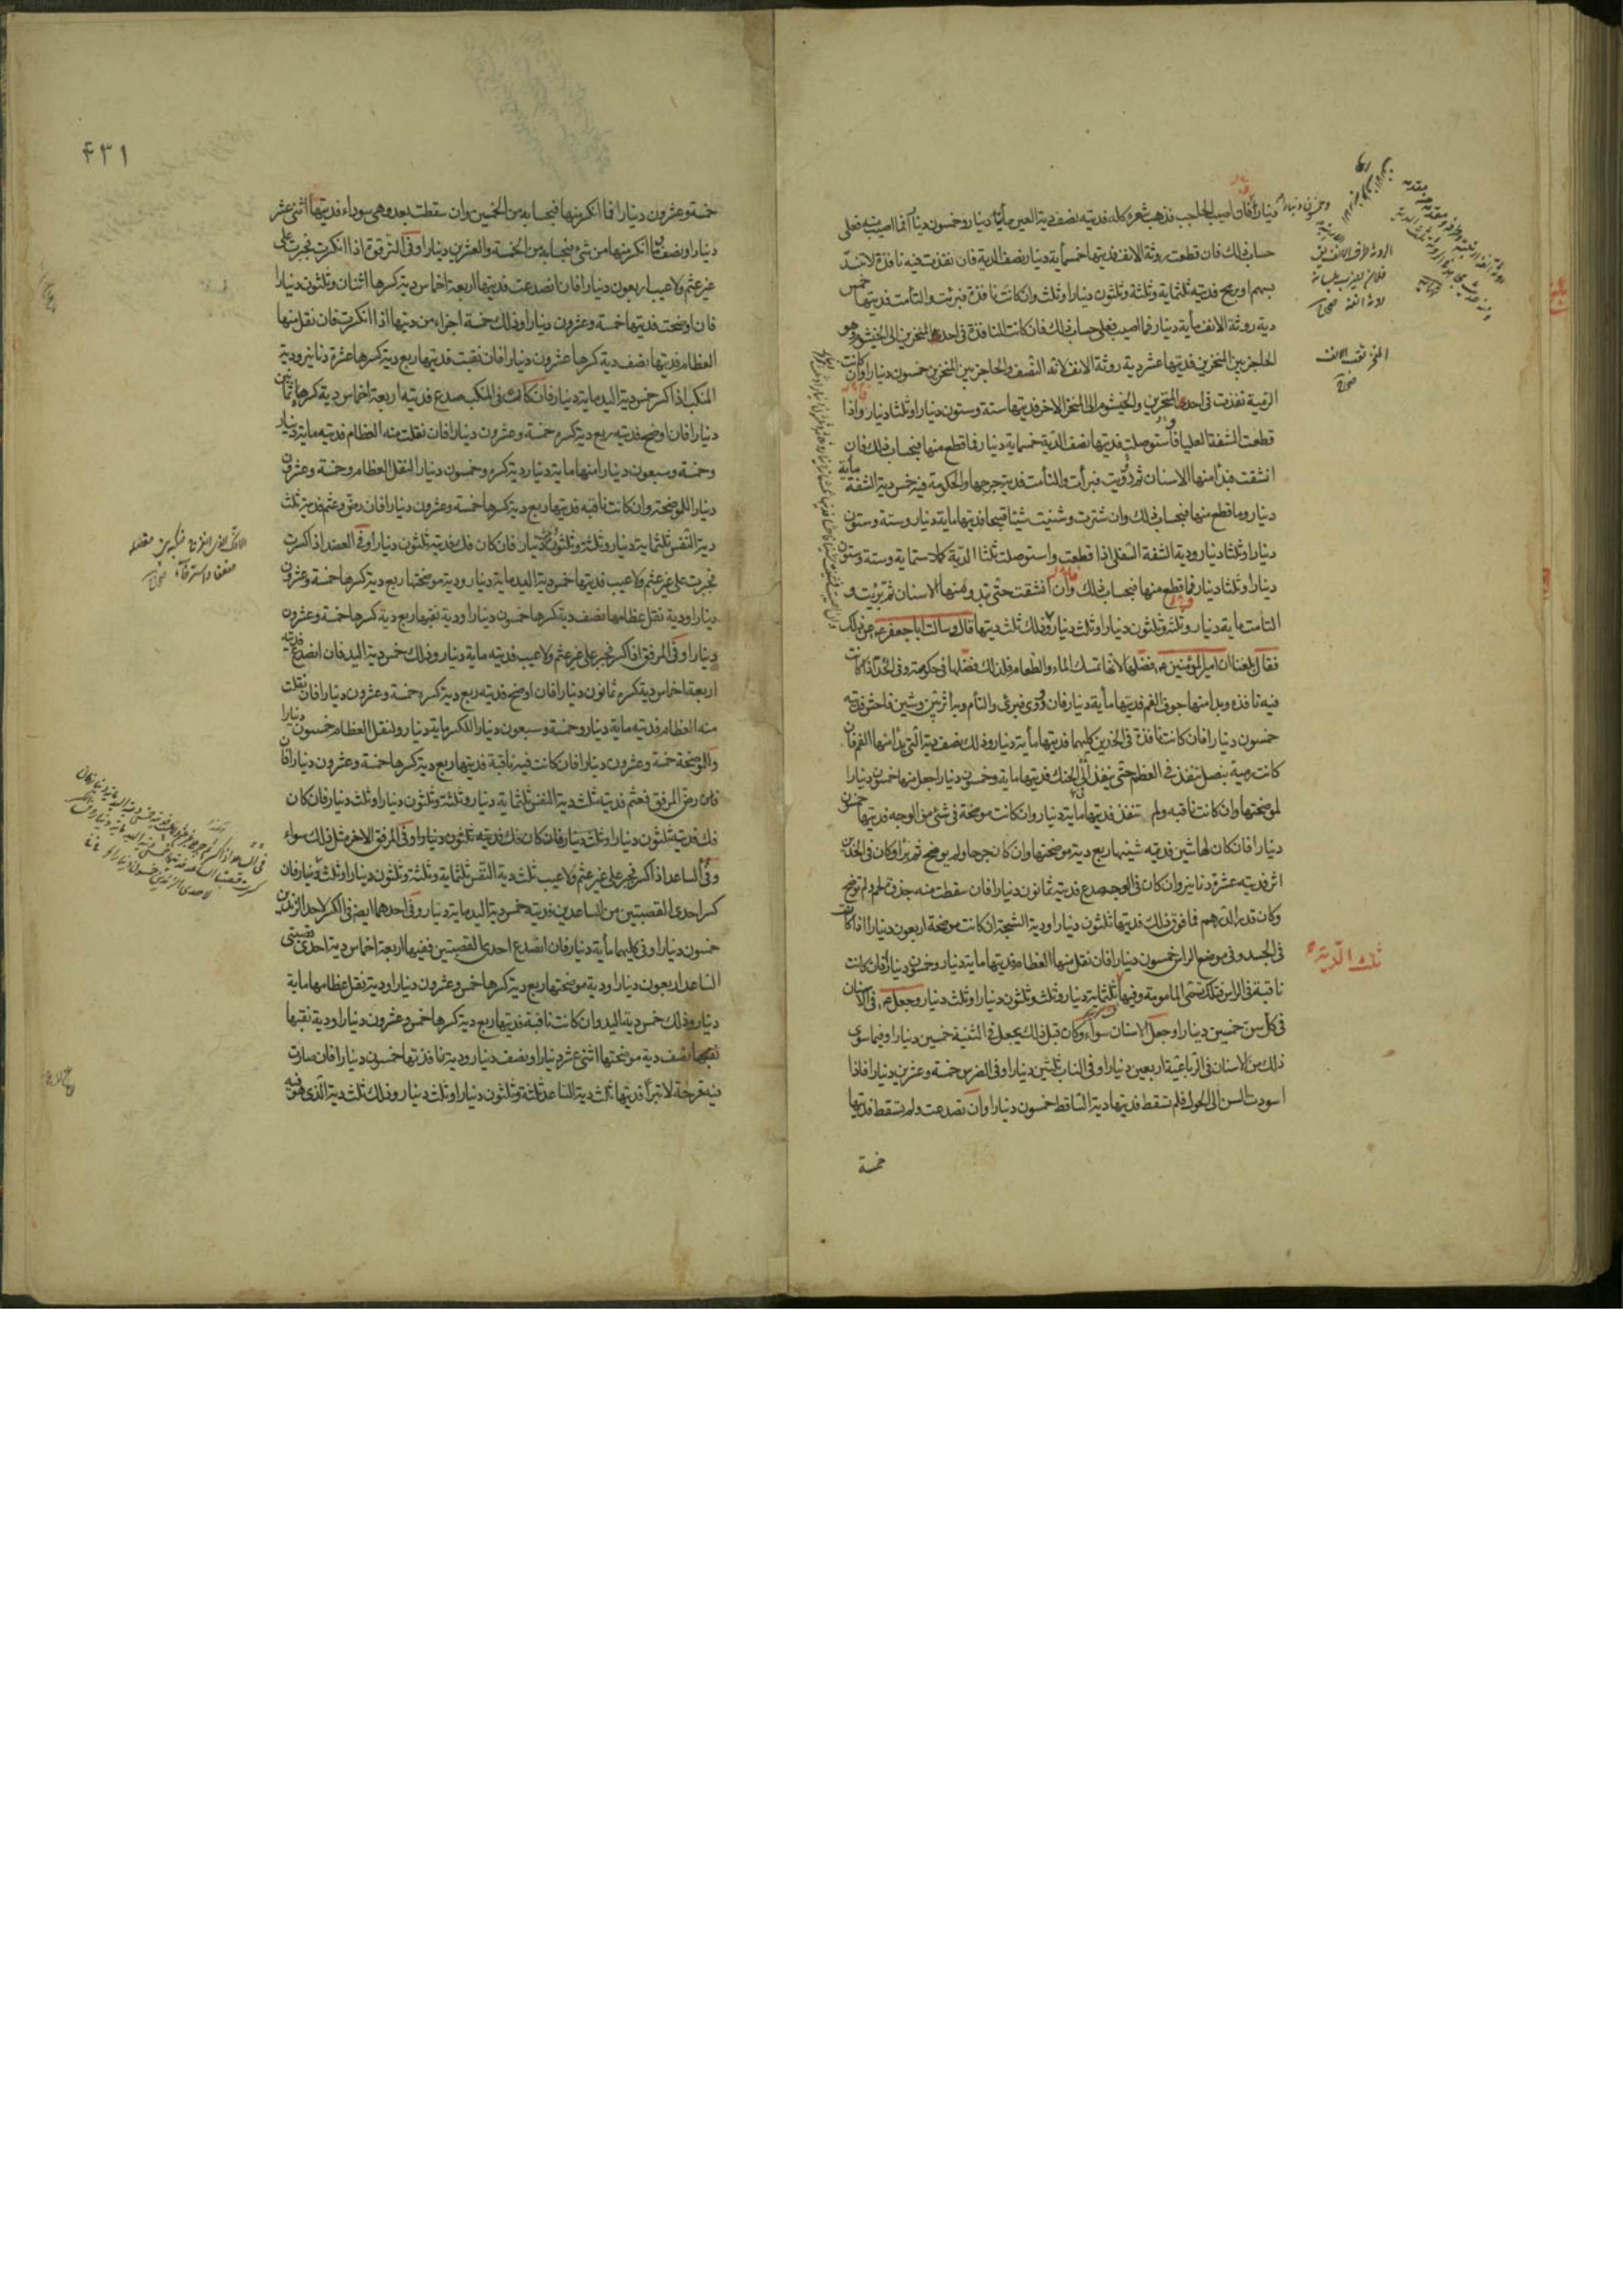 دينار فان اصيب الحاجب فذهب شعره كله فديته نصف دية العين مأتا دينار وخمسون دينارا فما اصيب منه فعلى
حساب ذلك فان قطعت روثة الانف فديتها خمسمأية دينار نصف الدية فان نفذت فيه نافذة لا تنسد
بسهم او رمح فديته ثلثماية وثلثة وثلثون دينارا وثلث وان كانت نافذة فبرئت والتأمت فديتها خمس
دية روثة الانف مأية دينار فما اصيب فعلى حساب ذلك فان كانت النافذة في احدى المنخرين الى الخيشوم وهو
الحاجز بين المنخرين فديتها عشر دية روثة الانف لانه النصف والحاجز بين المنخرين خمسون دينارا وان كانت
الرمية نفذت في احدى المنخرين والخيشوم الى المنخر الاخر فديتها ستة وستون دينارا وثلثا دينار واذا
قطعت الشفة العليا فاستوصلت فديتها نصف الدية خمسماية دينار فما قطع منها فبحساب ذلك فان
انشقت فبدا منها الاسنان ثم دوويت فبرأت والتأمت فدية جرحها والحكومة فيه خمس دية الشفة مأية
دينار وما قطع منها فبحساب ذلك وان شترت وشينت شينا قبيحا فديتها ماية دينار وستة وستون
دينارا وثلثا دينار ودية الشفة السفلى اذا قطعت واستوصلت ثلثا الدية كملا ستماية وستة وستون
دينارا وثلثا دينار فما قطع منها فبحساب ذلك وان انشقت حتى تبدو منها الاسنان ثم برئت و
التامت ماية دينار وثلثة وثلثون دينارا وثلث دينار وذلك ثلث ديتها قال وسالت ابا جعفر ع عن ذلك
فقال بلغنا ان امير المؤمنين ع فضلها لانها تمسك الماء والطعام فلذلك فضلها في حكومته وفي الخد اذا كانت
فيه نافذة وبدا منها جوف الفم فديتها مأية دينار فان دووى فبرئ والتأم وبه اثر بين وشين فاحش فديته
خمسون دينارا فان كانت نافذة في الخدين كليهما فديتها مأية دينار وذلك نصف دية التي بدا منها الفم فان
كانت رمية بنصل تنفذ في العظم حتى ينفذ الى الحنك فديتها ماية وخمسون دينارا جعل منها خمسون دينارا
لموضحتها وان كانت ناقبه ولم تنفذ فديتها ماية دينار وان كانت موضحة في شئ من الوجه فديتها خمسون
دينارا فان كان لها شين فدية شينها ربع دية موضحتها وان كان جرحا ولم يوضح ثم برأ وكان في الخدين
اثر فديته عشرة دنانير وان كان في الوجه صدع فديته ثمانون دينارا فان سقطت منه جذوة لحم ولم توضح
وكان قدر الدرهم فما فوق ذلك فديتها ثلثون دينارا ودية الشجة ان كانت موضحة اربعون دينارا اذا كانت
في الجسد وفي موضع الراس خمسون دينارا فان نقل منها العظام فديتها ماية دينار وخمسون دينارا فان كانت
ناقبة في الراس فتلك تسمى المامومة وفيها ثلثماية دينار وثلثة وثلثون دينارا وثلث دينار وجعل ع في الاسنان
في كل سن خمسين دينارا وجعل الاسنان سواء وكان قبل ذلك يجعل في الثنية خمسين دينارا وفيما سوى
ذلك من الاسنان في الرباعية اربعين دينارا وفي الناب ثلثين دينارا وفي الضرس خمسة وعشرين دينارا فاذا
اسودت السن الى الحول فلم تسقط فديتها دية الساقط خمسون دينارا وان تصدعت ولم تسقط فديتها
خمسة
الروثة طرف الانف يقال
فلان يضرب بلسانه
روثة انفه صحاح
المنخر ثقب الانف
صحاح
ثلث الدية
۴۳۱
خمسة وعشرون دينارا فما انكسر منها فبحسابه من الخمسين وان سقطت بعد وهي سوداء فديتها اثنى عشر
دينارا ونصف فما انكسر منها من شئ فبحسابه من الخمسة والعشرين دينارا وفي الترقوة اذا انكسرت فجبرت على
غير عثم ولا عيب اربعون دينارا فان انصدعت فديتها اربعة اخماس دية كسرها اثنان وثلثون دينارا
فان اوضحت فديتها خمسة وعشرون دينارا وذلك خمسة اجزاء من ديتها اذا انكسرت فان نقل منها
العظام فديتها نصف دية كسرها عشرون دينارا فان نقبت فديتها ربع دية كسرها عشرة دنانير ودية
المنكب اذا كسر خمس دية اليد ماية دينار فان كان في المنكب صدع فديته اربعة اخماس دية كسره ثمانون
دينارا فان اوضح فديته ربع دية كسره خمسة وعشرون دينارا فان نقلت منه العظام فديته ماية دينار
وخمسة وسبعون دينارا منها ماية دينار دية كسره وخمسون دينارا لنقل العظام وخمسة وعشرون
دينارا للموضحة وان كانت ناقبه فديتها ربع دية كسرها خمسة وعشرون دينارا فان رض فعثم فديته ثلث
دية النفس ثلثماية دينار وثلثة وثلثون دينارا وثلث دينار فان كان فك فديته ثلثون دينارا وفي العضد اذا كسرت
فجبرت على غير عثم ولا عيب فديتها خمس دية اليد ماية دينار ودية موضحتها ربع دية كسرها خمسة وعشرون
دينارا ودية نقل عظامها نصف دية كسرها خمسون دينارا ودية نقبها ربع دية كسرها خمسة وعشرون
دينارا وفي المرفق اذا كسر فجبر على غير عثم ولا عيب فديته ماية دينار وذلك خمس دية اليد فان انصدع فديته
اربعة اخماس دية كسره ثمانون دينارا فان اوضح فديته ربع دية كسره خمسة وعشرون دينارا فان نقلت
منه العظام فديته ماية دينار وخمسة وسبعون دينارا للكسر ماية دينار ولنقل العظام خمسون دينارا
وللموضحة خمسة وعشرون دينارا فان كانت فيه ناقبة فديتها ربع دية كسرها خمسة وعشرون دينارا فان
رض المرفق فعثم فديته ثلث دية النفس ثلثماية دينار وثلثة وثلثون دينارا وثلث دينار فان كان
فك فديته ثلثون دينارا وفي المرفق الاخر مثل ذلك سواء
وفي الساعد اذا كسر فجبر على غير عثم ولا عيب ثلث دية النفس ثلثماية وثلثة وثلثون دينارا وثلث دينار فان
كسر احدى القصبتين من الساعدين فديته خمس دية اليد ماية دينار وفي احدهما ايضا في الكسر لاحد الزندين
خمسون دينارا وفي كليهما مأية دينار فان انصدع احدى القصبتين ففيها اربعة اخماس دية احدى قصبتى
الساعد اربعون دينارا ودية موضحتها ربع دية كسرها خمس وعشرون دينارا ودية نقل عظامها ماية
دينار وذلك خمس دية اليد وان كانت ناقبة فديتها ربع دية كسرها خمس وعشرون دينارا ودية نقبها
نصف دية موضحتها اثنى عشر دينارا ونصف دينار ودية نافذتها خمسون دينارا فان صارت
فيه قرحة لا تبرأ فديتها ثلث دية الساعد ثلثة وثلثون دينارا وثلث دينار وذلك ثلث دية الذي هو فيه